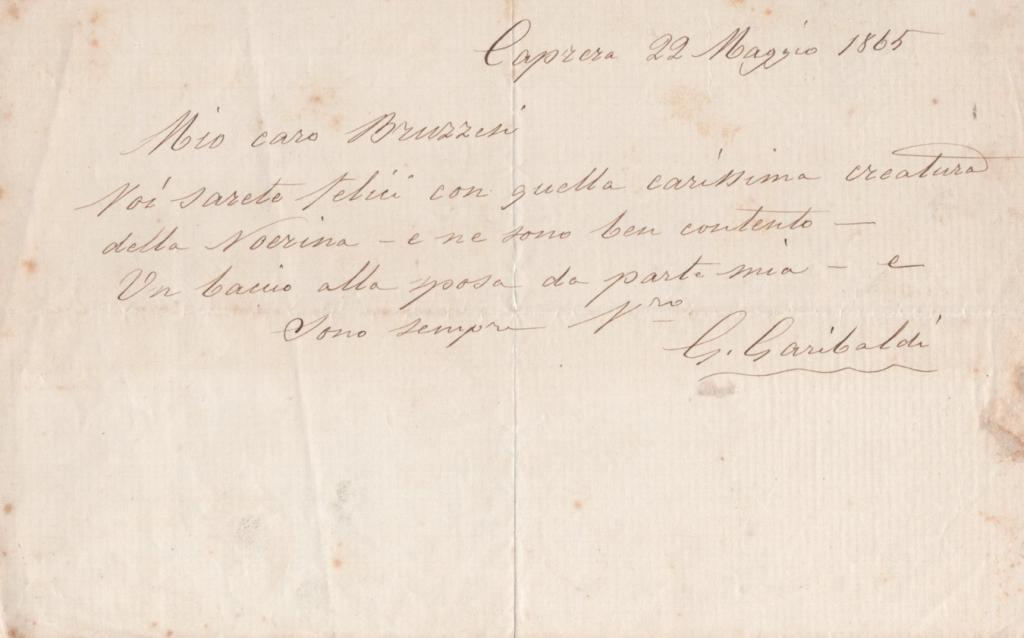 Caprera 22 Maggio 1865
Mio caro Bruzzesi
Voi sarete felici con quella carissima creatura
della Noerina – e ne sono ben contento –
Un baccio alla sposa da parte mia – e
Sono sempre V.ro
G. Garibaldi